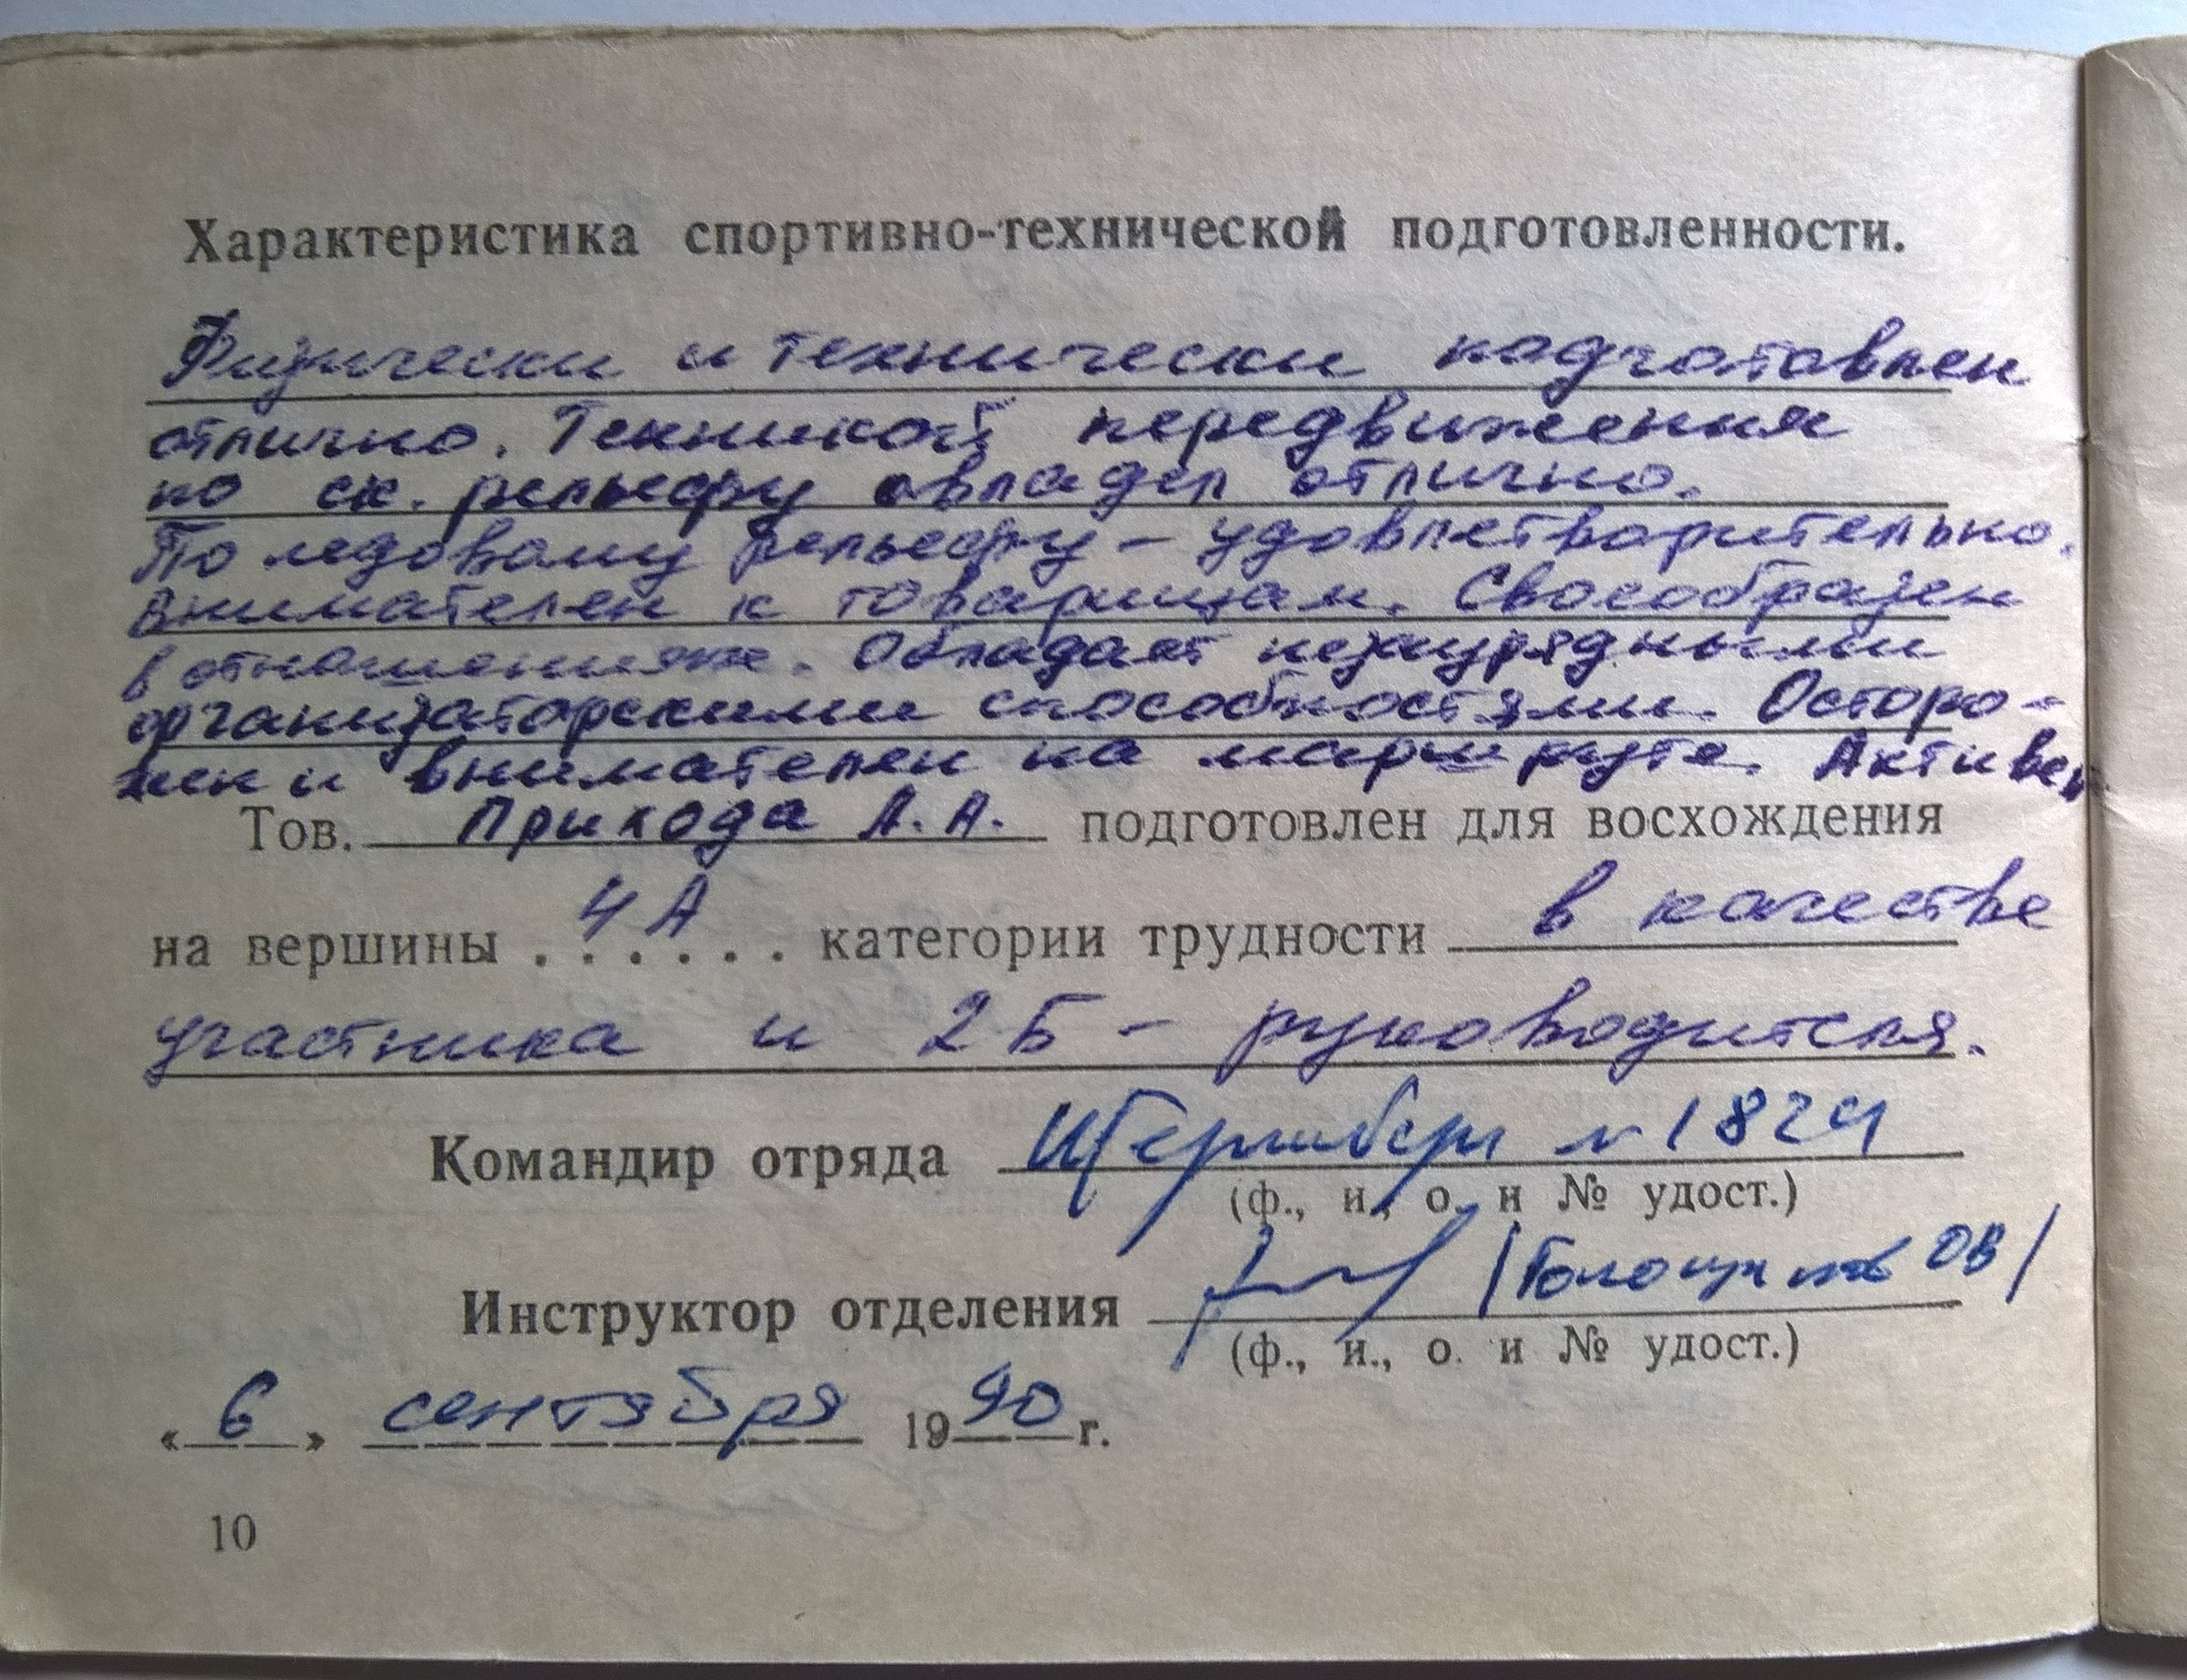 Характеристика спортивно-технической подготовленности.
Физически и технически подготовлен
отлично. Техникой передвижения
по ск. рельефу овладел отлично.
По ледовому рельефу - удовлетворительно.
Внимателен к товарищам. Своеобразен
в отношениях. Обладает незаурядными
организаторскими способностями. Осторо-
жен и внимателен на маршруте. Активен
Тов. Прихода А. А. подготовлен для восхождения
на вершины 4А . . . . . . категории трудности в качестве
участника и 2Б - руководителя.
Командир отряда № 1824
(ф., и., о. и № удост.)
Инструктор отделения ОВ/
(ф., и., о. и № удост.)
« 6 » сентября 1990 г.
10